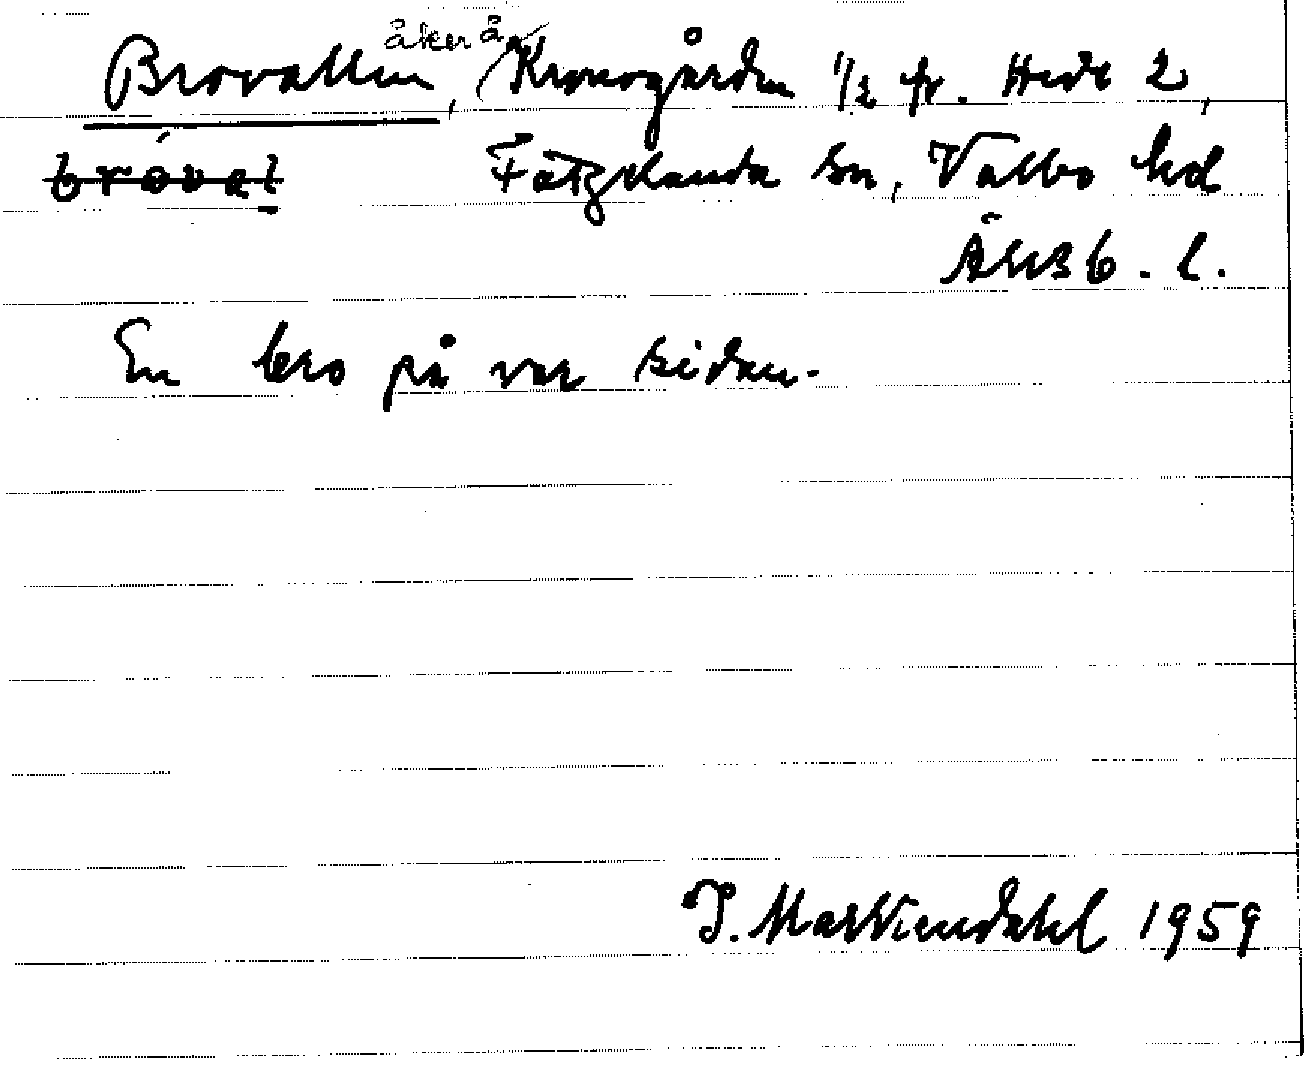 Brovallen, åker å Kronogården 1/2 fr. Hede 2,
bróval Fätgelanda sn, Valbo hd
Älvsb. l.
En bro på var sidan.
J. Martiendahl 1959